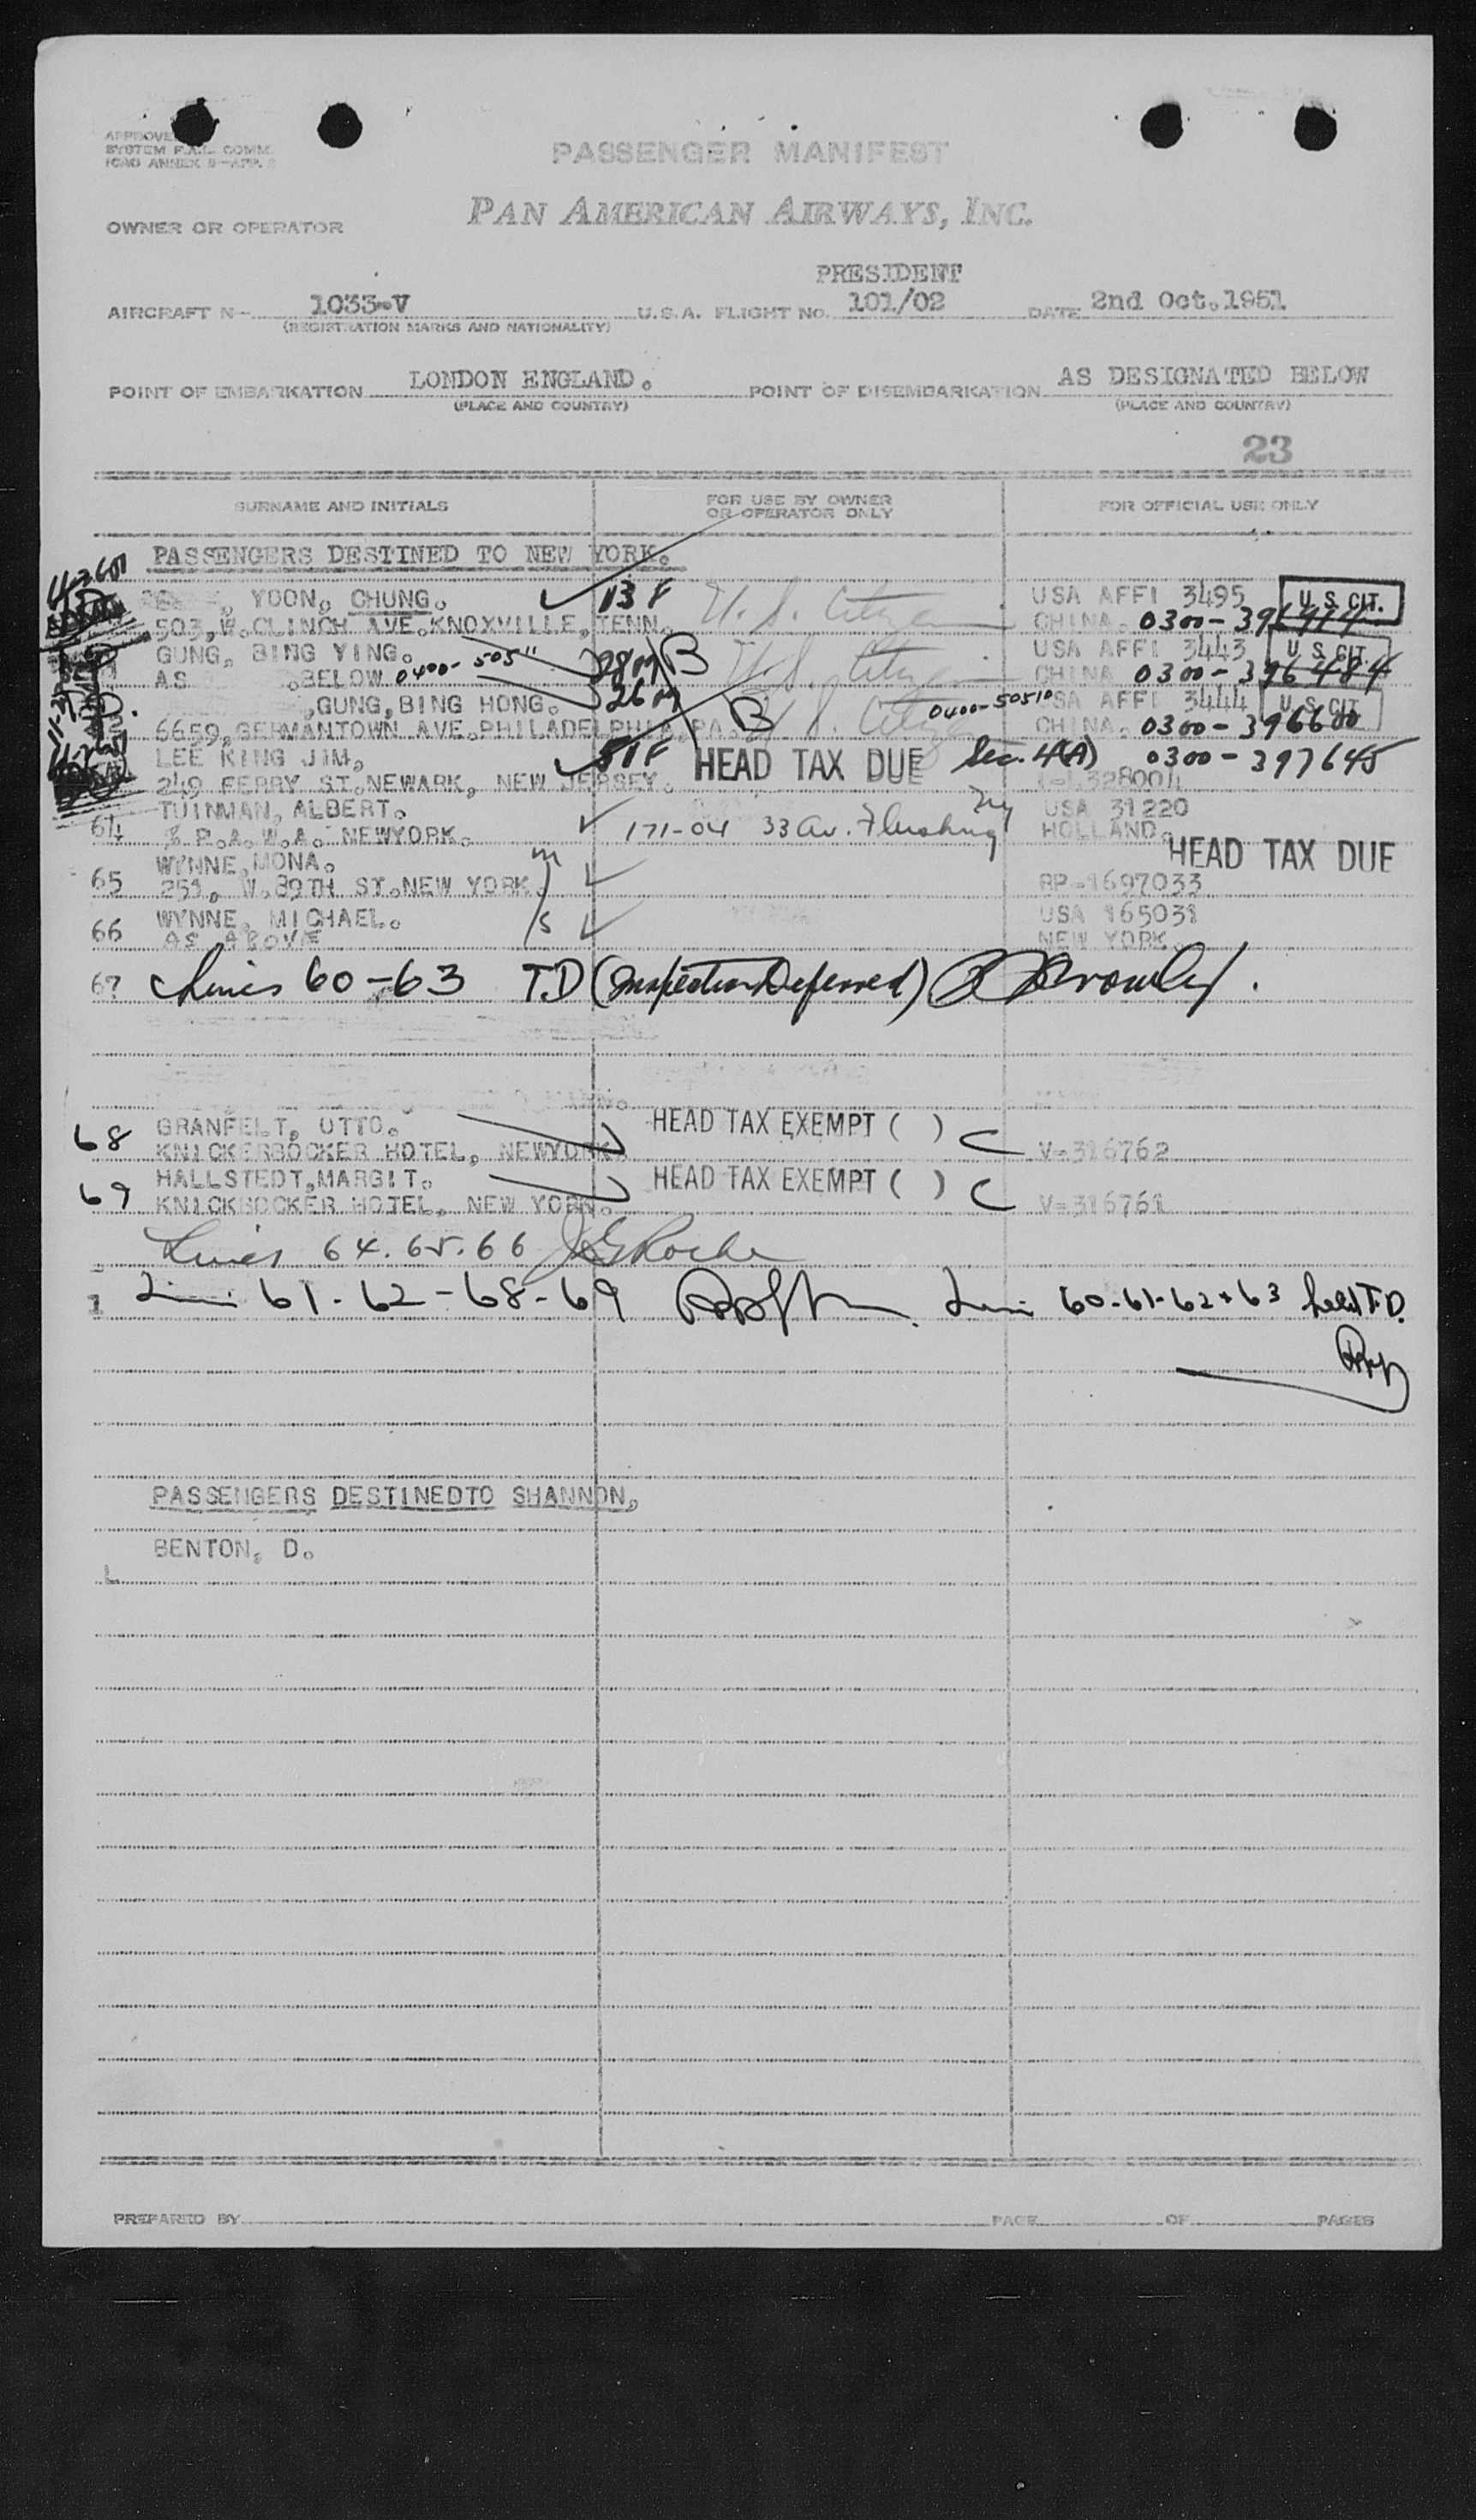 SYSTEM F.A.L. COMM.
ICAO ANNEX 9-APP.
PASSENGER MANIFEST
OWNER OR OPERATOR PAN AMERICAN AIRWAYS, INC.
PRESIDENT
AIRCRAFT N- 1033-V U.S.A. FLIGHT NO. 101/02 DATE 2nd Oct.1951
(REGISTRATION MARKS AND NATIONALITY)
POINT OF EMBARKATION LONDON ENGLAND. POINT OF DISEMBARKATION AS DESIGNATED BELOW
(PLACE AND COUNTRY) (PLACE AND COUNTRY)
23
SURNAME AND INITIALS FOR USE BY OWNER OR OPERATOR ONLY FOR OFFICIAL USE ONLY
PASSENGERS DESTINED TO NEW YORK.
, YOON, CHUNG. 13 F U.S. Citizen USA AFFI 3495 U.S.CIT.
503,W.CLINCH AVE.KNOXVILLE,TENN. CHINA. 0300-
GUNG, BING YING. 28 M B U.S. Citizen USA AFFI 3443 U.S.CIT.
AS .BELOW 0400-50511 CHINA 0300-396484
,GUNG,BING HONG. 26 M B U.S. Citizen 0400-50510 USA AFFI 3444 U.S.CIT
6659,GERMANTOWN AVE.PHILADELPHIA,PA. CHINA. 0300-396600
LEE KING JIM, 51F HEAD TAX DUE Sec. 4(A) 0300-397645
249 FERRY ST.NEWARK, NEW JERSEY. 328004
TUINMAN, ALBERT. USA 31220
64 % P.A.W.A. NEWYORK. 171-04 33 Av. Flushing NY HOLLAND.
WYNNE,MONA. M HEAD TAX DUE
65 251, W.89TH ST.NEW YORK RP-1697033
WYNNE, MICHAEL. USA 165031
66 AS ABOVE S NEW YORK.
67 Lines 60-63 T.D (Inspection Deferred)
GRANFELT, OTTO. HEAD TAX EXEMPT ( )
68 KNICKERBOCKER HOTEL, NEWYORK. V-316762
HALLSTEDT,MARGIT. HEAD TAX EXEMPT ( )
69 KNICKBOCKER HOTEL, NEW YORK. V-316761
Lines 64.65.66 J G Roche
1 Lines 61-62-68-69 Lines 60-61-62+63 held T.D.
PASSENGERS DESTINEDTO SHANNON,
BENTON, D.
L
PREPARED BY PAGE OF PAGES